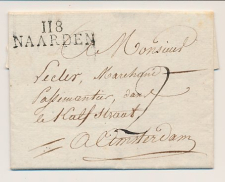 118
NAARDEN
A Monsieur
Lecler, Marchand
Passementier, dans
le Kalfstraat
A Amsterdam